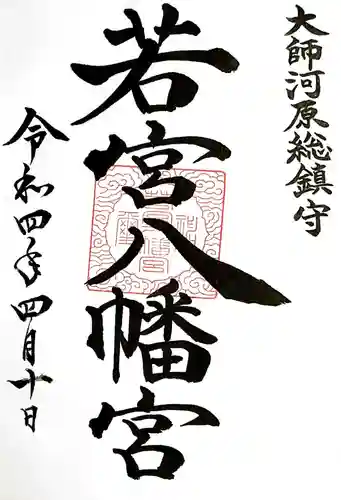 大師河原総鎮守
若宮八幡宮
令和四年四月十日